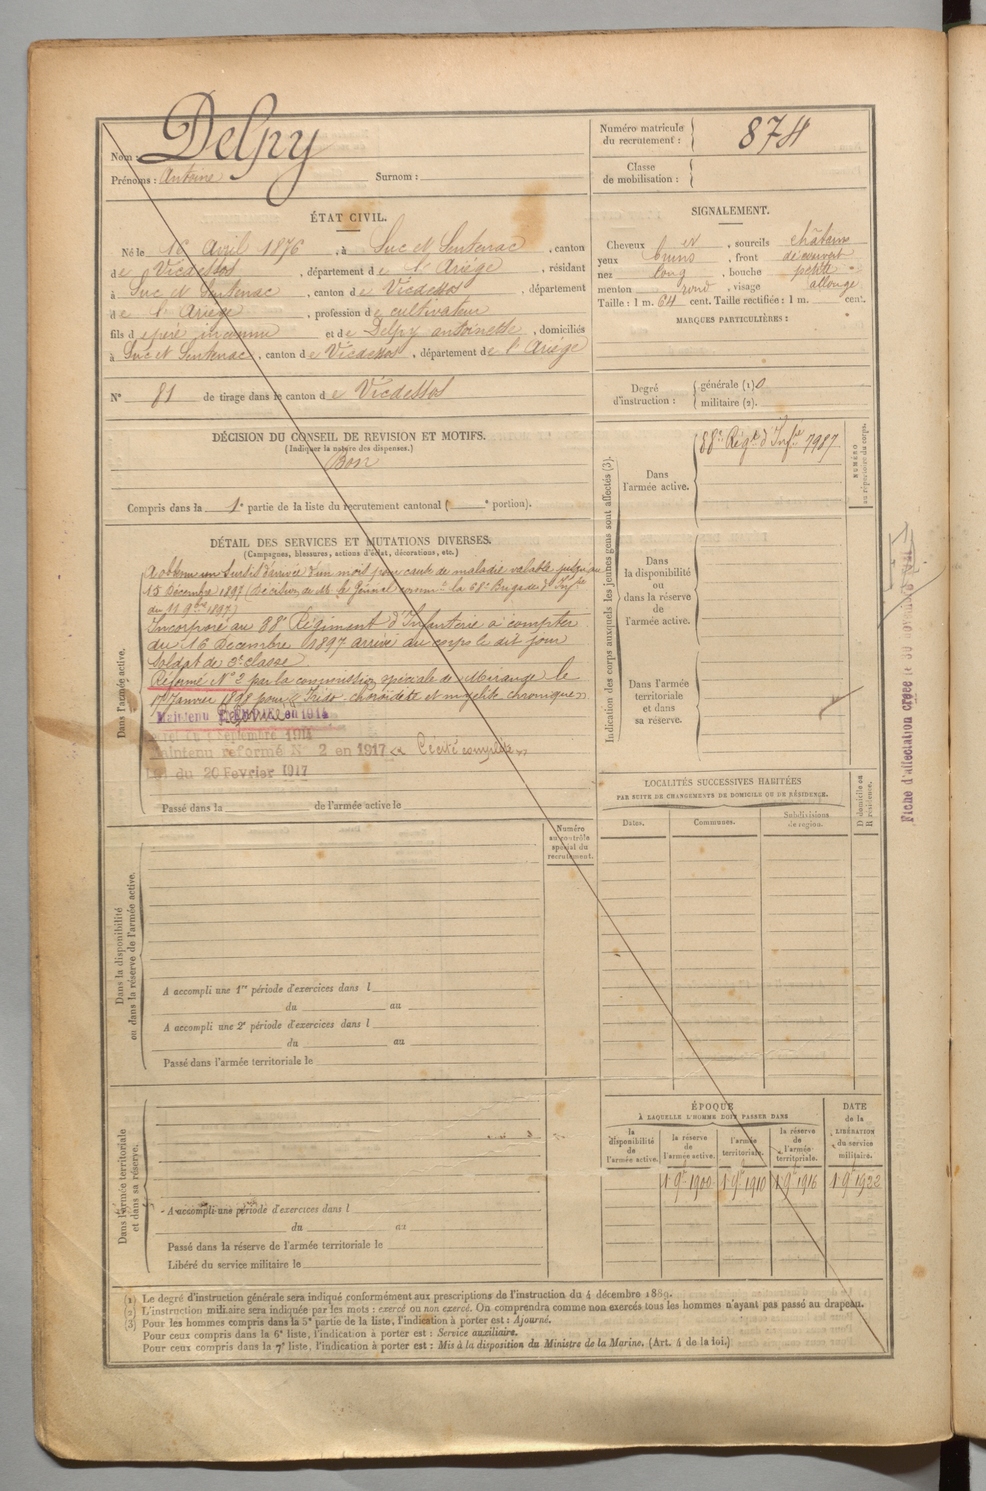 Nom : Delpy
Prénoms : Antoine Surnom :
Numéro matricule du recrutement : 874
Classe de mobilisation :
ÉTAT CIVIL.
Né le 16 Avril 1876, à Suc et Sentenac, canton
de Vicdessos, département de l'Ariège, résidant
à Suc et Sentenac, canton de Vicdessos, département
de l'Ariège, profession de cultivateur
fils de père inconnu et de Delpy antoinette, domiciliés
à Suc et Sentenac, canton de Vicdessos, département de l'Ariège
N° 81 de tirage dans le canton de Vicdessos
SIGNALEMENT.
Cheveux et, sourcils châtain
yeux bruns, front découvert
nez long, bouche petite
menton rond, visage allongé
Taille : 1 m. 64 cent. Taille rectifiée : 1 m. cent.
MARQUES PARTICULIÈRES :
Degré d'instruction : générale (1) 0
militaire (2).
DÉCISION DU CONSEIL DE REVISION ET MOTIFS.
(Indiquer la nature des dispenses.)
Bon
Compris dans la 1e partie de la liste du recrutement cantonal ( e portion).
DÉTAIL DES SERVICES ET MUTATIONS DIVERSES.
(Campagnes, blessures, actions d'éclat, décorations, etc.)
Dans l'armée active.
A obtenu un Sursis d'arrivée d'un mois pour cause de maladie valable jusqu'au
15 Décembre 1897 (Décision de Mr le Général comm t la 68e Brigade d'Infie
du 11 9bre 1897)
Incorporé au 88e Régiment d'Infanterie à compter
du 16 Décembre 1897 arrivé au corps le dit jour
Soldat de 2e classe.
Réformé N° 2 par la commission spéciale de Mirande le
17 Janvier 1898 pour « Irido-choroïdite et myélite chronique »
Maintenu en 1914
Décret du 9 Septembre 1914
Maintenu reformé N° 2 en 1917 « Cécité complète »
Loi du 20 Fevrier 1917
Passé dans la de l'armée active le
Indication des corps auxquels les jeunes gens sont affectés (3).
Dans l'armée active.
88e Régt d'Infie 7987
NUMÉRO au répertoire du corps.
Dans la disponibilité ou dans la réserve de l'armée active.
Dans l'armée territoriale et dans sa réserve.
Fiche d'affectation créée le
LOCALITÉS SUCCESSIVES HABITÉES
PAR SUITE DE CHANGEMENTS DE DOMICILE OU DE RÉSIDENCE.
Dates. Communes. Subdivisions de région.
D domicile ou R résidence.
Numéro au contrôle spécial du recrutement.
Dans la disponibilité ou dans la réserve de l'armée active.
A accompli une 1re période d'exercices dans l
du au
A accompli une 2e période d'exercices dans l
du au
Passé dans l'armée territoriale le
Dans l'armée territoriale et dans sa réserve.
A accompli une période d'exercices dans l
du au
Passé dans la réserve de l'armée territoriale le
Libéré du service militaire le
ÉPOQUE
À LAQUELLE L'HOMME DOIT PASSER DANS
la disponibilité de l'armée active.
la réserve de l'armée active.
l'armée territoriale.
la réserve de l'armée territoriale.
DATE de la LIBÉRATION du service militaire.
1 9bre 1900 1 9bre 1910 1 9bre 1916 1 9bre 1922
(1) Le degré d'instruction générale sera indiqué conformément aux prescriptions de l'instruction du 4 décembre 1889.
(2) L'instruction militaire sera indiquée par les mots : exercé ou non exercé. On comprendra comme non exercés tous les hommes n'ayant pas passé au drapeau.
(3) Pour les hommes compris dans la 5e partie de la liste, l'indication à porter est : Ajourné.
Pour ceux compris dans la 6e liste, l'indication à porter est : Service auxiliaire.
Pour ceux compris dans la 7e liste, l'indication à porter est : Mis à la disposition du Ministre de la Marine. (Art. 4 de la loi.)